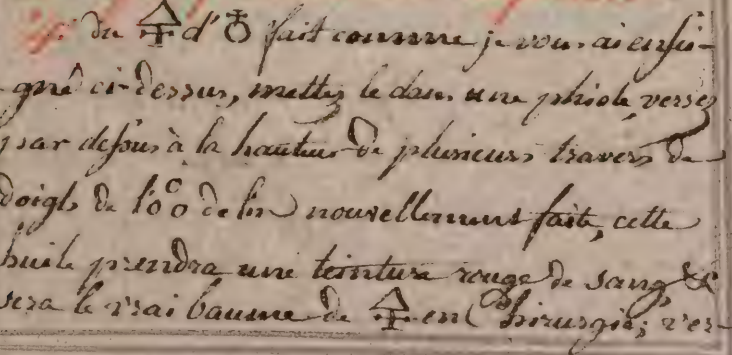 du 🜍 d'♁ fait comme je vous ai ensei-
gné ci-dessus, mettez le dans une phiole, versez
par dessus à la hauteur de plusieurs travers de
doigts de l'o°o de lin nouvellement faite, cette
huile prendra une teinture rouge de sang &
sera le vrai baume de 🜍 en Chirurgie; ver-